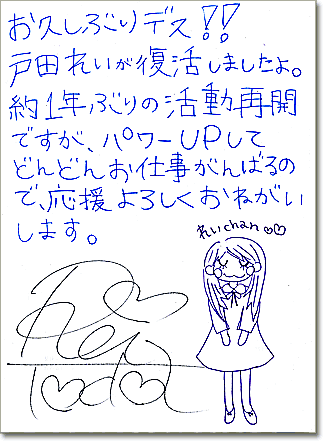 お久しぶりデス!!
戸田れいが復活しましたよ。
約1年ぶりの活動再開
ですが、パワーUPして
どんどんお仕事がんばるの
で、応援よろしくおねがい
します。
れいchan♡♡
Rei
Toda